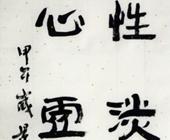 性淡
心虚
甲午歲